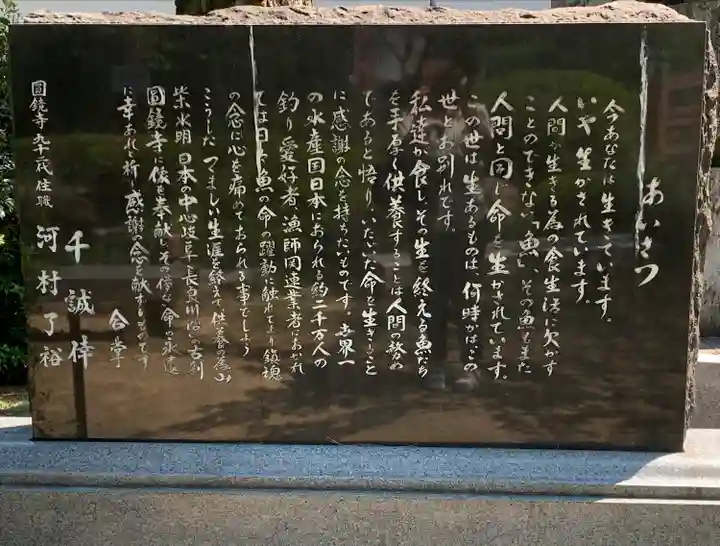 あいさつ
今あなたは生きています。
いや生かされています。
人間が生きる為の食生活に欠かす
ことのできない「魚」、その魚もまた
人間と同じ命を生かされています。
この世は生あるものは、何時かはこの
世とお別れです。
私達が食し、その生を終える魚たち
を手厚く供養することは人間の努め
であると悟り、いただいた命を生きること
に感謝の念を持ちたいものです。世界一
の水産国日本におられる約二千万人の
釣り愛好者、漁師関連業者におかれ
ては日々魚の命の躍動に触れてより鎮魂
の念に心を痛めておられる事でしょう
こうした つつましい生涯を終えて 供養の為 山
紫水明 日本の中心岐阜「長良川」沿いの古刹
圓鏡寺に像を奉献し、その尊い命の永遠
に幸あれと祈り感謝の念を献ずるものです
合掌
千 誠倖
圓鏡寺 代住職 河村了裕